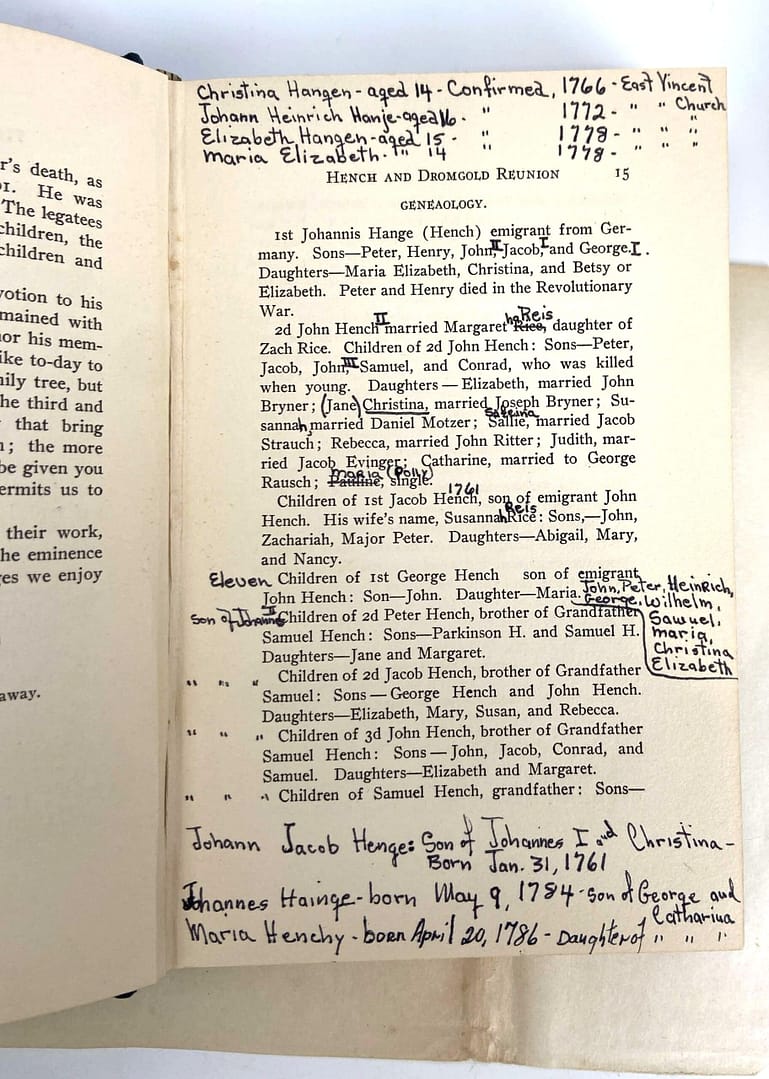 r's death, as
01. He was
The legatees
children, the
children and
votion to his
mained with
or his mem-
ike to-day to
nily tree, but
he third and
that bring
n; the more
be given you
ermits us to
their work,
he eminence
es we enjoy
away.
Christina Hangen - aged 14 - Confirmed, 1766 - East Vincent
Johann Heinrich Hanje - aged 16 - " 1772 - " " Church
Elizabeth Hangen - aged 15 - " 1778 - " " "
Maria Elizabeth - " 14 " 1778 - " " "
HENCH AND DROMGOLD REUNION 15
GENEAOLOGY.
1st Johannis Hange (Hench) emigrant from Ger-
many. Sons—Peter, Henry, John, II Jacob, I and George. I.
Daughters—Maria Elizabeth, Christina, and Betsy or
Elizabeth. Peter and Henry died in the Revolutionary
War.
2d John Hench II married Margaretha Reis Rice, daughter of
Zach Rice. Children of 2d John Hench: Sons—Peter,
Jacob, John, III Samuel, and Conrad, who was killed
when young. Daughters—Elizabeth, married John
Bryner; (Jane) Christina, married Joseph Bryner; Su-
sannah, married Daniel Motzer; Salleina Sallie, married Jacob
Strauch; Rebecca, married John Ritter; Judith, mar-
ried Jacob Evinger; Catharine, married to George
Rausch; Maria (Polly) Pauline, single.
Children of 1st Jacob Hench, 1761 son of emigrant John
Hench. His wife's name, Susannah Reis Rice: Sons,—John,
Zachariah, Major Peter. Daughters—Abigail, Mary,
and Nancy.
Eleven Children of 1st George Hench son of emigrant
John Hench: Son—John. Daughter—Maria. John, Peter, Heinrich,
George, Wilhelm,
Samuel,
Maria,
Christina
Elizabeth
son of Johannes II Children of 2d Peter Hench, brother of Grandfather
Samuel Hench: Sons—Parkinson H. and Samuel H.
Daughters—Jane and Margaret.
" " " Children of 2d Jacob Hench, brother of Grandfather
Samuel: Sons—George Hench and John Hench.
Daughters—Elizabeth, Mary, Susan, and Rebecca.
" " " Children of 3d John Hench, brother of Grandfather
Samuel Hench: Sons—John, Jacob, Conrad, and
Samuel. Daughters—Elizabeth and Margaret.
" " " Children of Samuel Hench, grandfather: Sons—
Johann Jacob Henge: Son of Johannes I and Christina -
Born Jan. 31, 1761
Johannes Hainge - born May 9, 1784 - son of George and
Catharina
Maria Henchy - born April 20, 1786 - Daughter of " " "